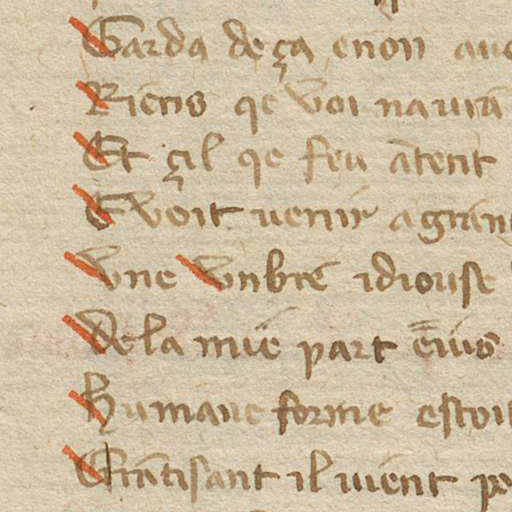 Garda de ça enon aue
Riens qe voi na uira
Et çil qe feu atent
E voit uenir a gran
Vne vnbre idiouse
De la mie part enuis
Humane forme estoit
Grantisant il uient pe